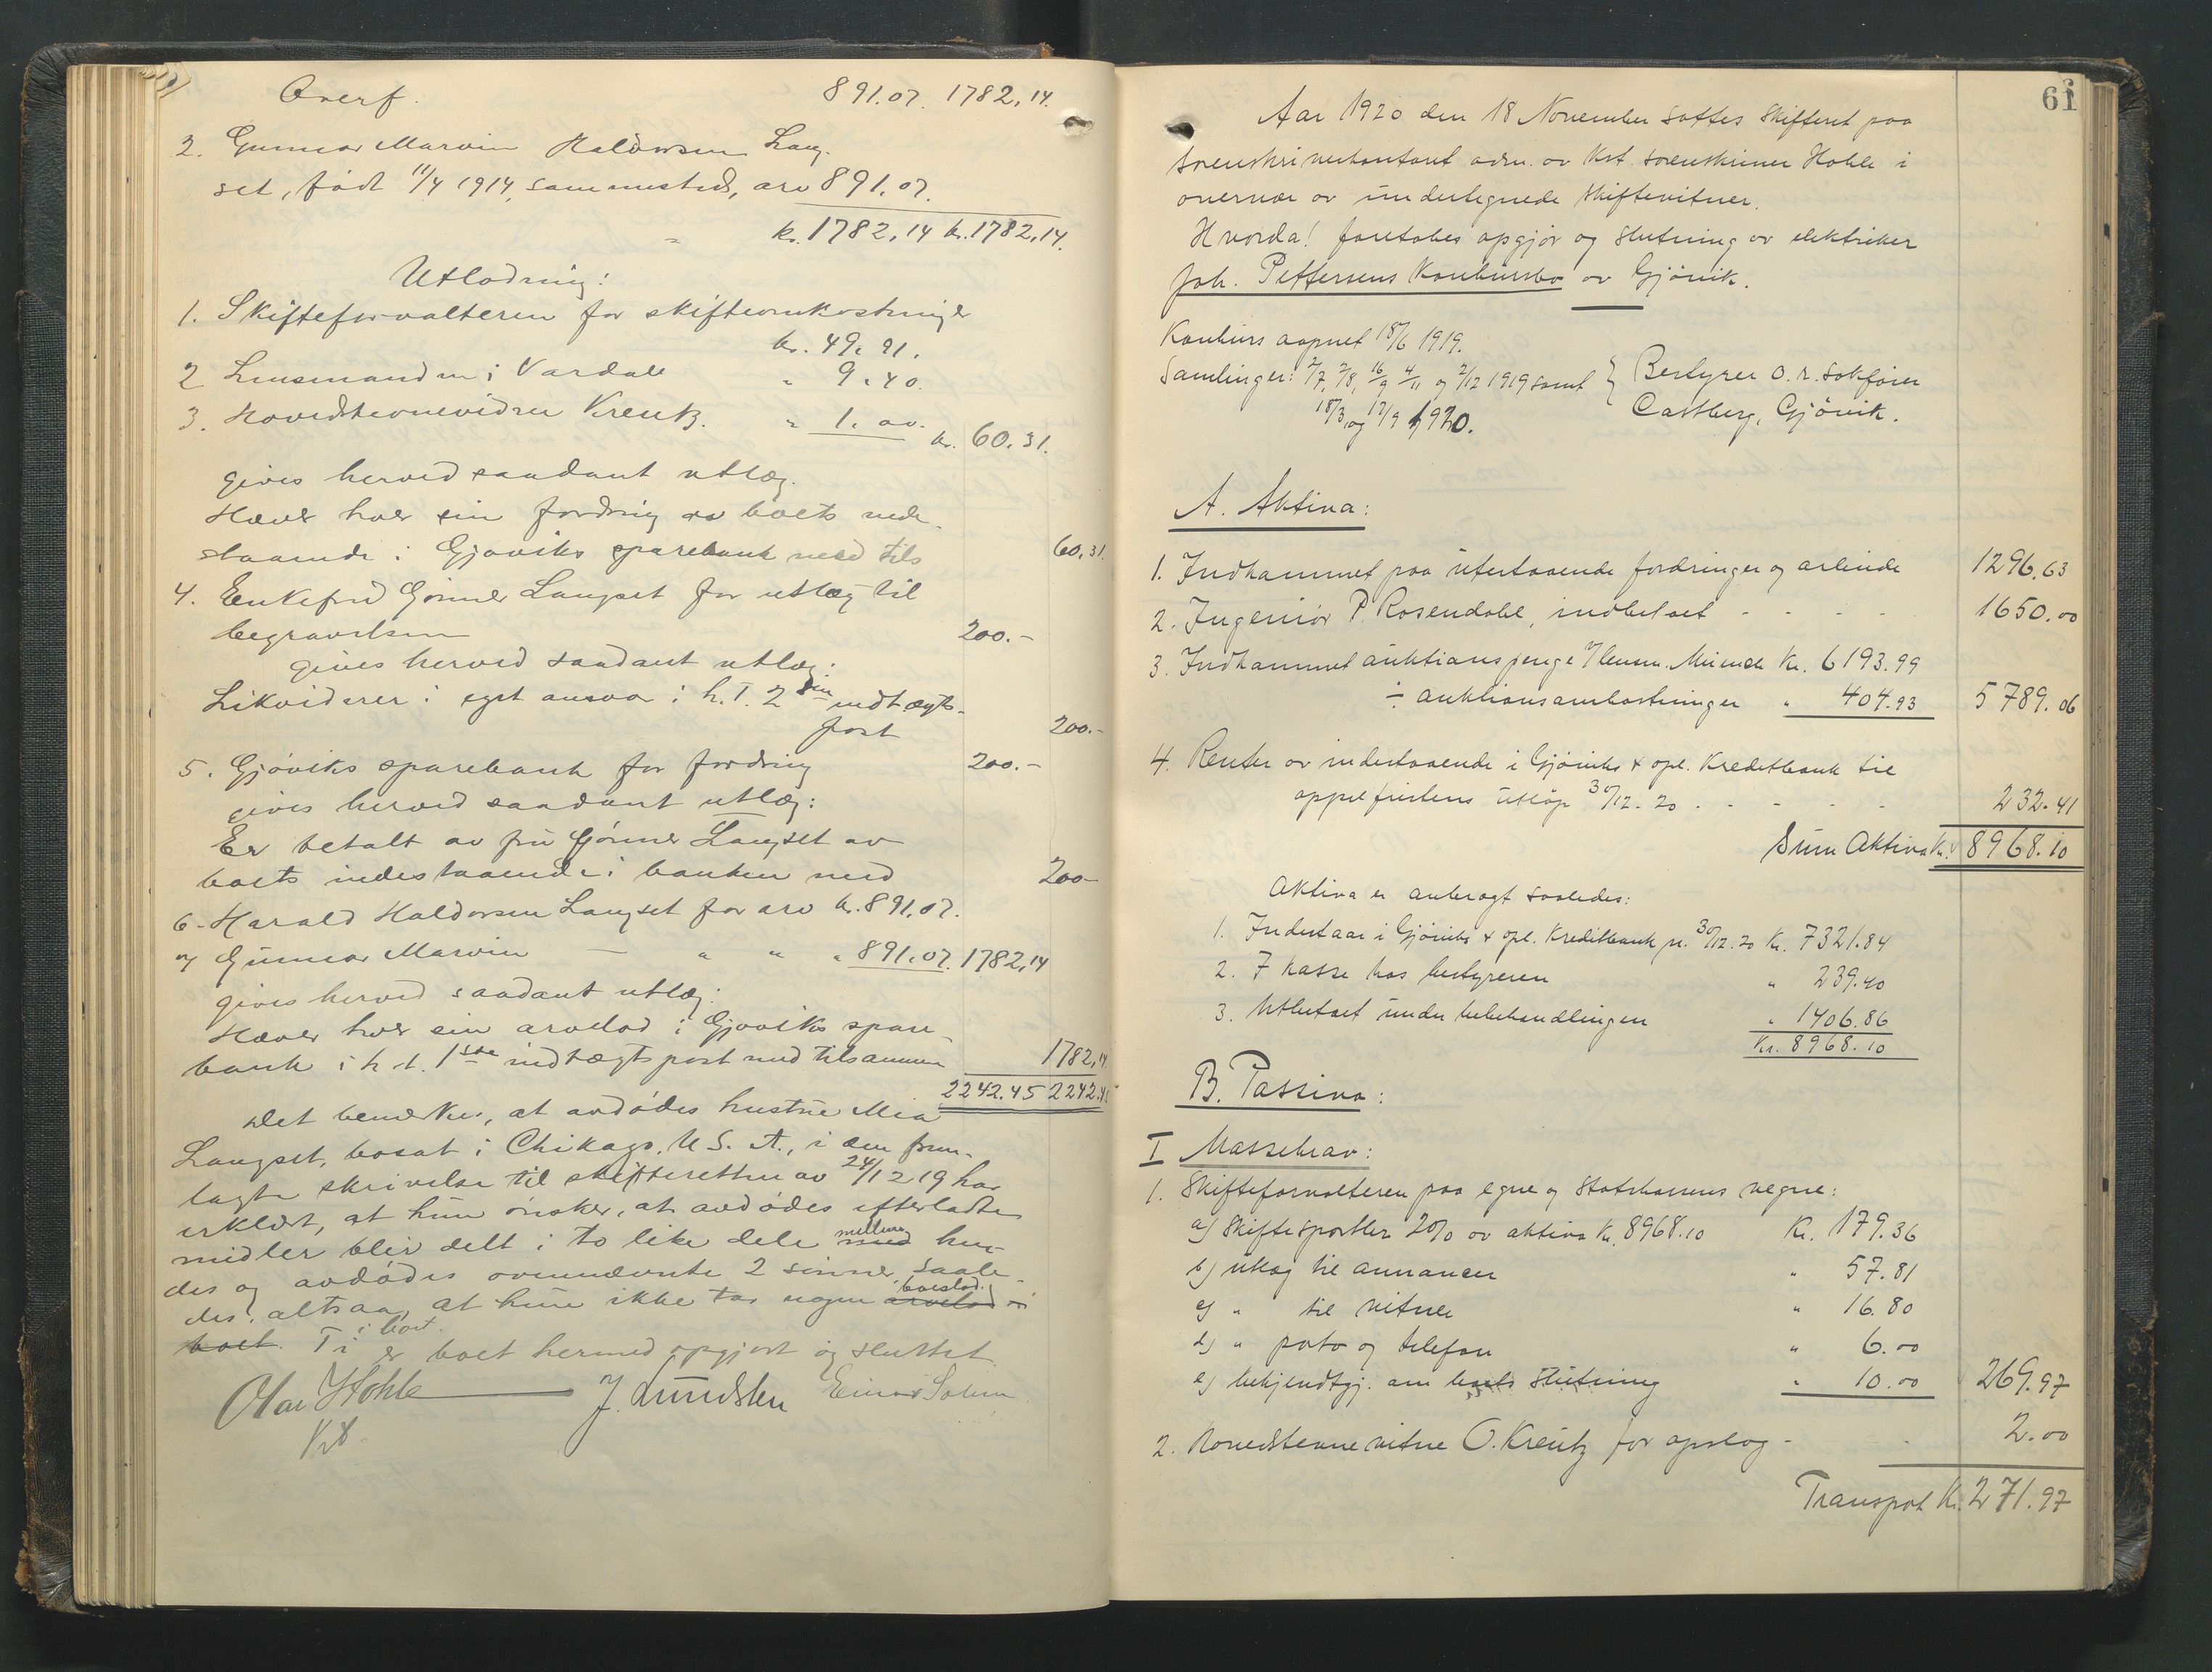 Overf. 891.07. 1782,14.
2. Gunnar Marvin Haldorsen Lang-
set, født 11/4 1914, sammesteds, arv 891.07.
" kr. 1782,14 kr. 1782,14.
Utlodning:
1. Skifteforvalteren for skifteomkostninger
kr. 49.91.
2 Lensmanden i Vardal " 9.40.
3. Hovedstevnevidnet Kreutz. " 1.00. kr. 60.31.
gives herved saadant utlæg.
Hæver hver sin fordring av boets inde-
staaende i Gjøviks sparebank med tils 60.31.
4. Enkefru Gønner Langset for utlæg til
begravelsen 200.-
gives herved saadant utlæg:
Likviderer i eget ansvar i h.t. 2den indtægts-
post 200.-
5. Gjøviks sparebank for fordring 200.-
gives herved saadant utlæg:
Er betalt av fru Gønner Langset av
boets indestaaende i banken med 200-
6- Harald Haldorsen Langset for arv kr. 891.07.
og Gunnar Marvin — " " " 891.07. 1782,14
gives herved saadant utlæg:
Hæver hver sin arvelod i Gjøviks spare-
bank i h.t. 1ste indtægtspost med tilsammen 1782,14
2242.45 2242.45
Det bemerkes, at avdødes hustru Mia
Langset, bosat i Chikago, U.S.A., i den frem-
lagte skrivelse til skifteretten av 24/12 19 har
erklært, at hun ønsker, at avdødes efterladte
midler blir delt i to like dele med mellem hen-
des og avdødes ovennævnte 2 sønner, saale-
des, altsaa, at hun ikke tar nogen arvelod boeslod i
boet. i boet. Ti er boet hermed opgjort og sluttet.
Olav Hohle J. Lundsten Einar Solum
Kst.
61
Aar 1920 den 18 November sattes skifteret paa
sorenskriverkontoret adm. av kst. sorenskriver Hohle i
overvær av undertegnede skiftevitner.
Hvorda! foretokes opgjør og slutning av elektriker
Joh. Pettersens konkursbo av Gjøvik.
Konkurs aapnet 18/6 1919.
Samlinger: 2/7, 2/8, 16/9 4/11 og 2/12 1919 samt } Bestyrer o.r. sakfører
18/3 og 17/9 1920. Castberg, Gjøvik.
A. Aktiva:
1. Indkommet paa utestaaende fordringer og arbeide 1296.63
2. Ingeniør P. Rosendahl, indbetalt - - - - 1650.00
3. Indkommet auktionspenge v/ lensm. Muende Kr. 6193.99
÷ auktionsomkostninger " 404.93 5789.06
4. Renter av indestaaende i Gjøviks & opl. Kreditbank til
appelfristens utløp 30/12.20 - - - - 232.41
Sum Aktiva Kr. 8968.10
Aktiva er anbragt saaledes:
1. Indestaar i Gjøviks & opl. Kreditbank pr. 30/12.20 Kr. 7321.84
2. I kasse hos bestyreren " 239.40
3. Utbetalt under bobehandlingen " 1406.86
Kr. 8968.10
B. Passiva:
I Massekrav:
1. Skifteforvalteren paa egne og Statskassens vegne:
a) Skiftesportler 2% av aktiva Kr. 8968.10 Kr. 179.36
b) utlæg til annoncer " 57.81
c) " til vitner " 16.80
d) " porto og telefon " 6.00
e) bekjendtgj. om boets slutning " 10.00 269.97
2. Hovedstevnevitne O. Kreutz for opslag - - 2.00
Transport Kr. 271.97